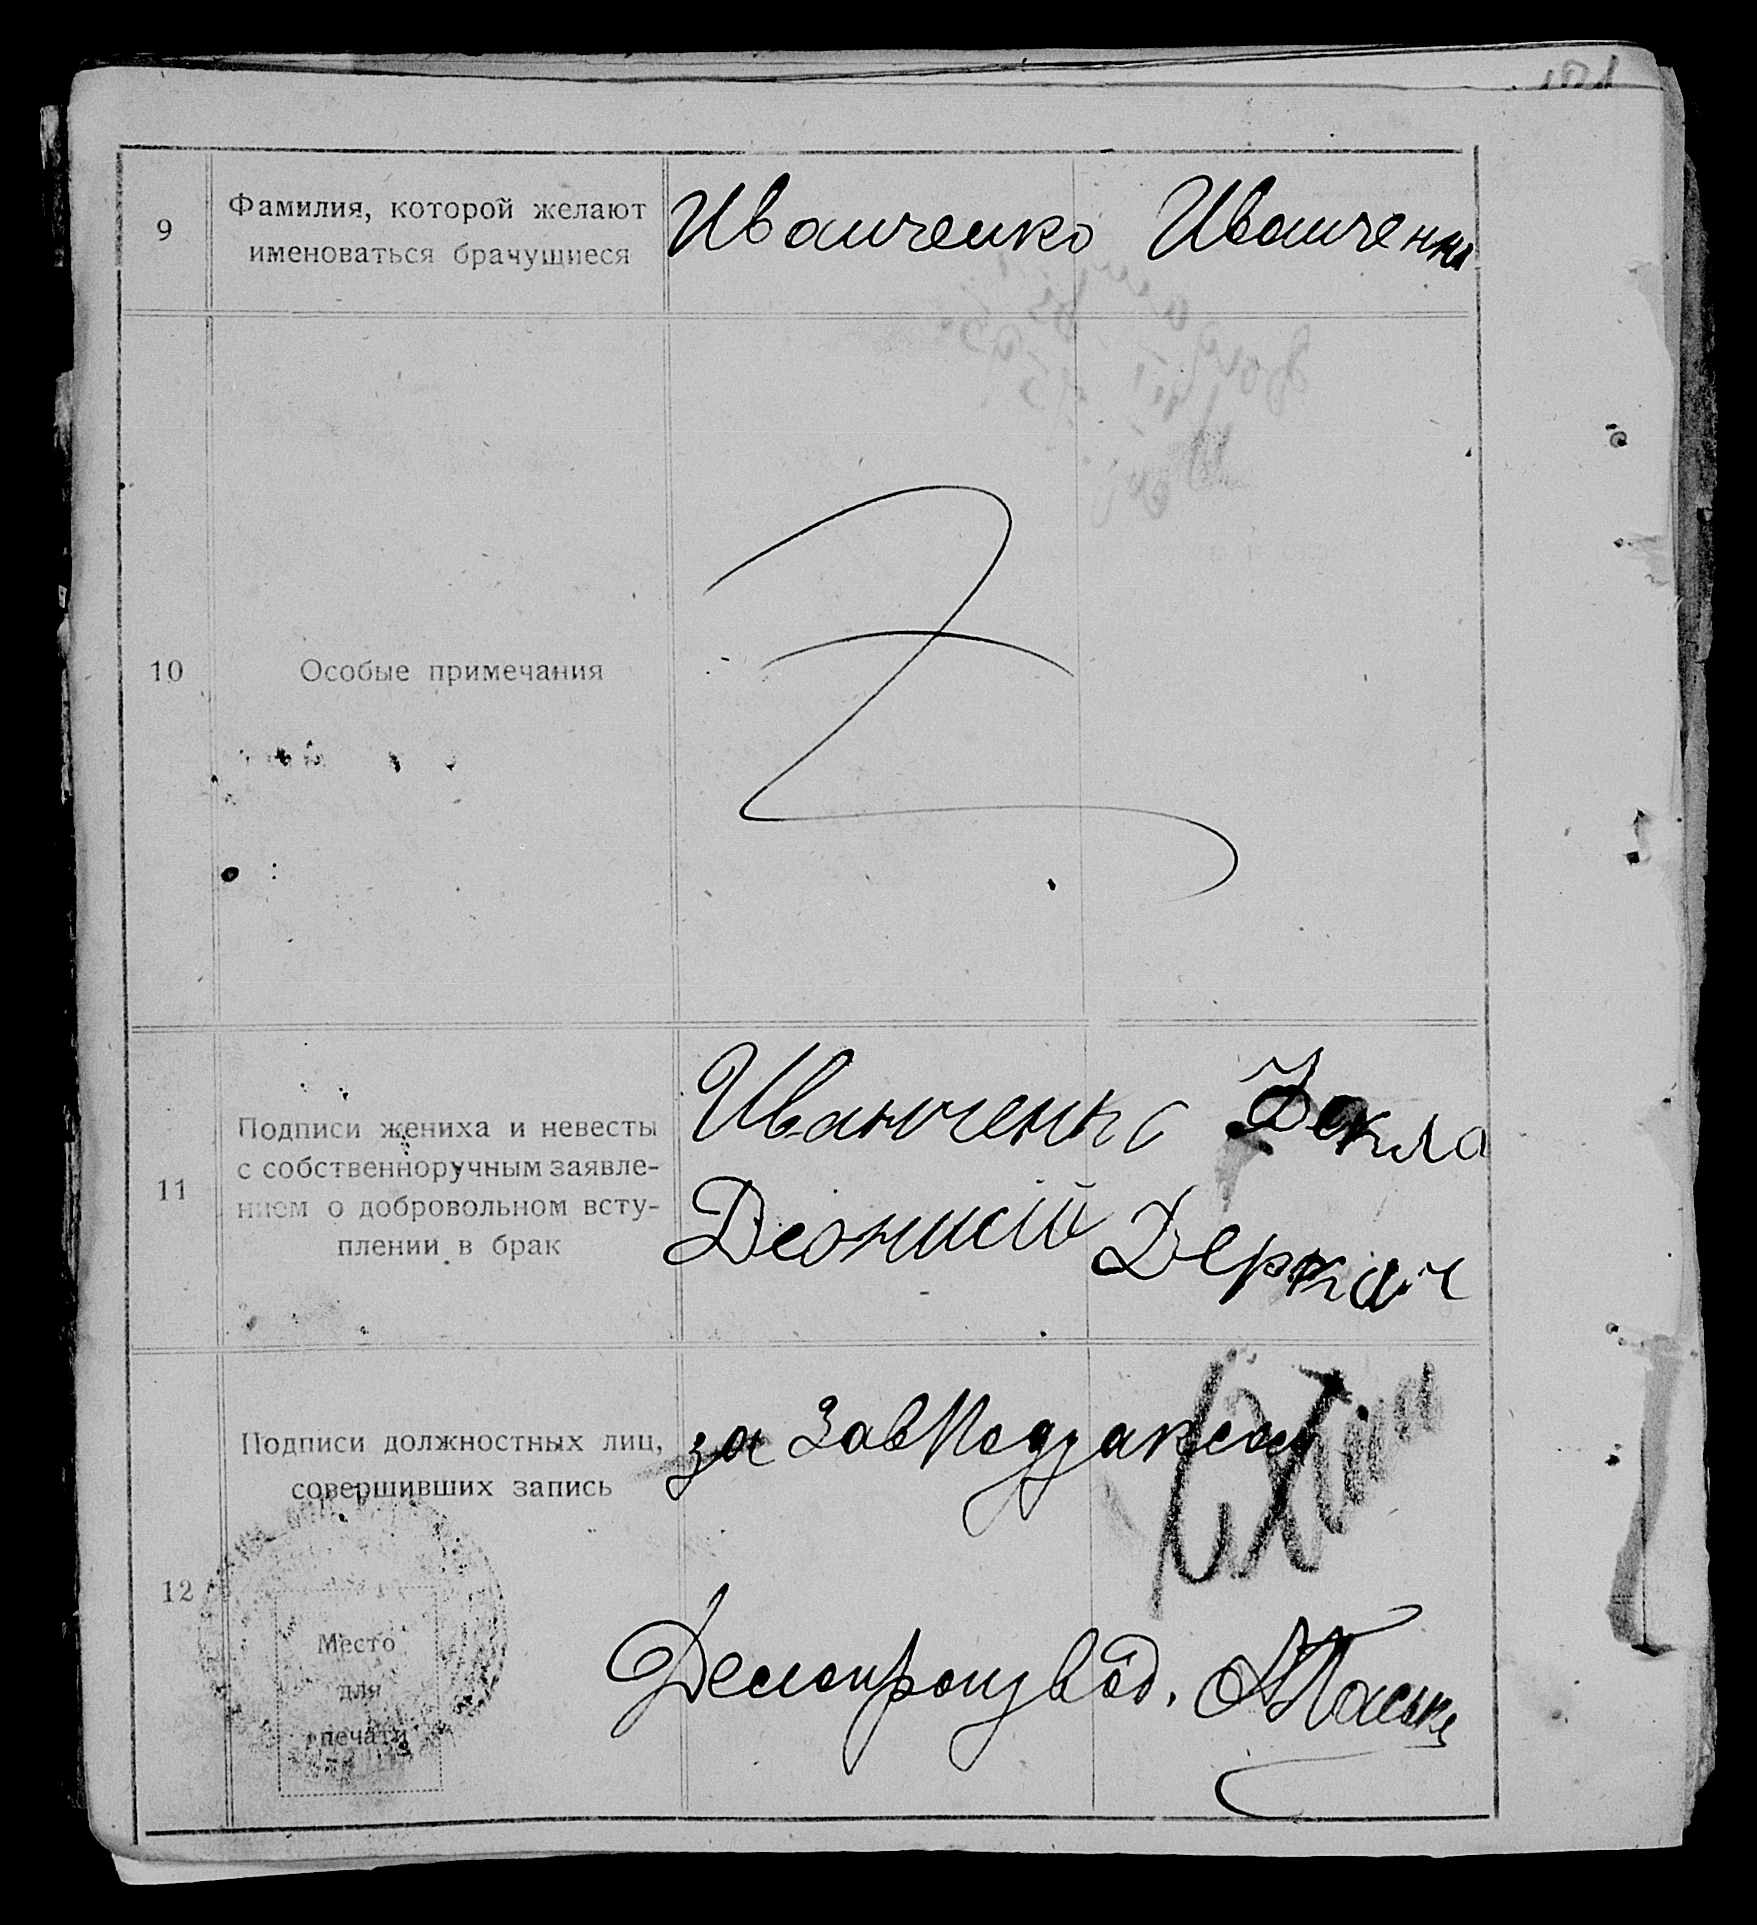 9
Фамилия, которой желают
именоваться брачущиеся
Иванченко Иванченко
10
Особые примечания
11
Подписи жениха и невесты
с собственноручным заявле-
нием о добровольном всту-
плении в брак
Иванченко
Деонисій
Фекла
Деркач
12
Подписи должностных лиц,
совершивших запись
за Зав Подзагсом
Делопроизвод.
Место
для
печати